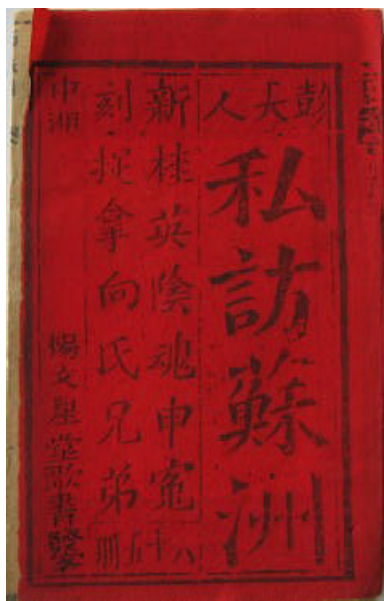 彭大人
私訪蘇洲
新刻
桂英陰魂申冤
捉拿向氏兄弟
八十五册
中湘
楊文星堂歌書發